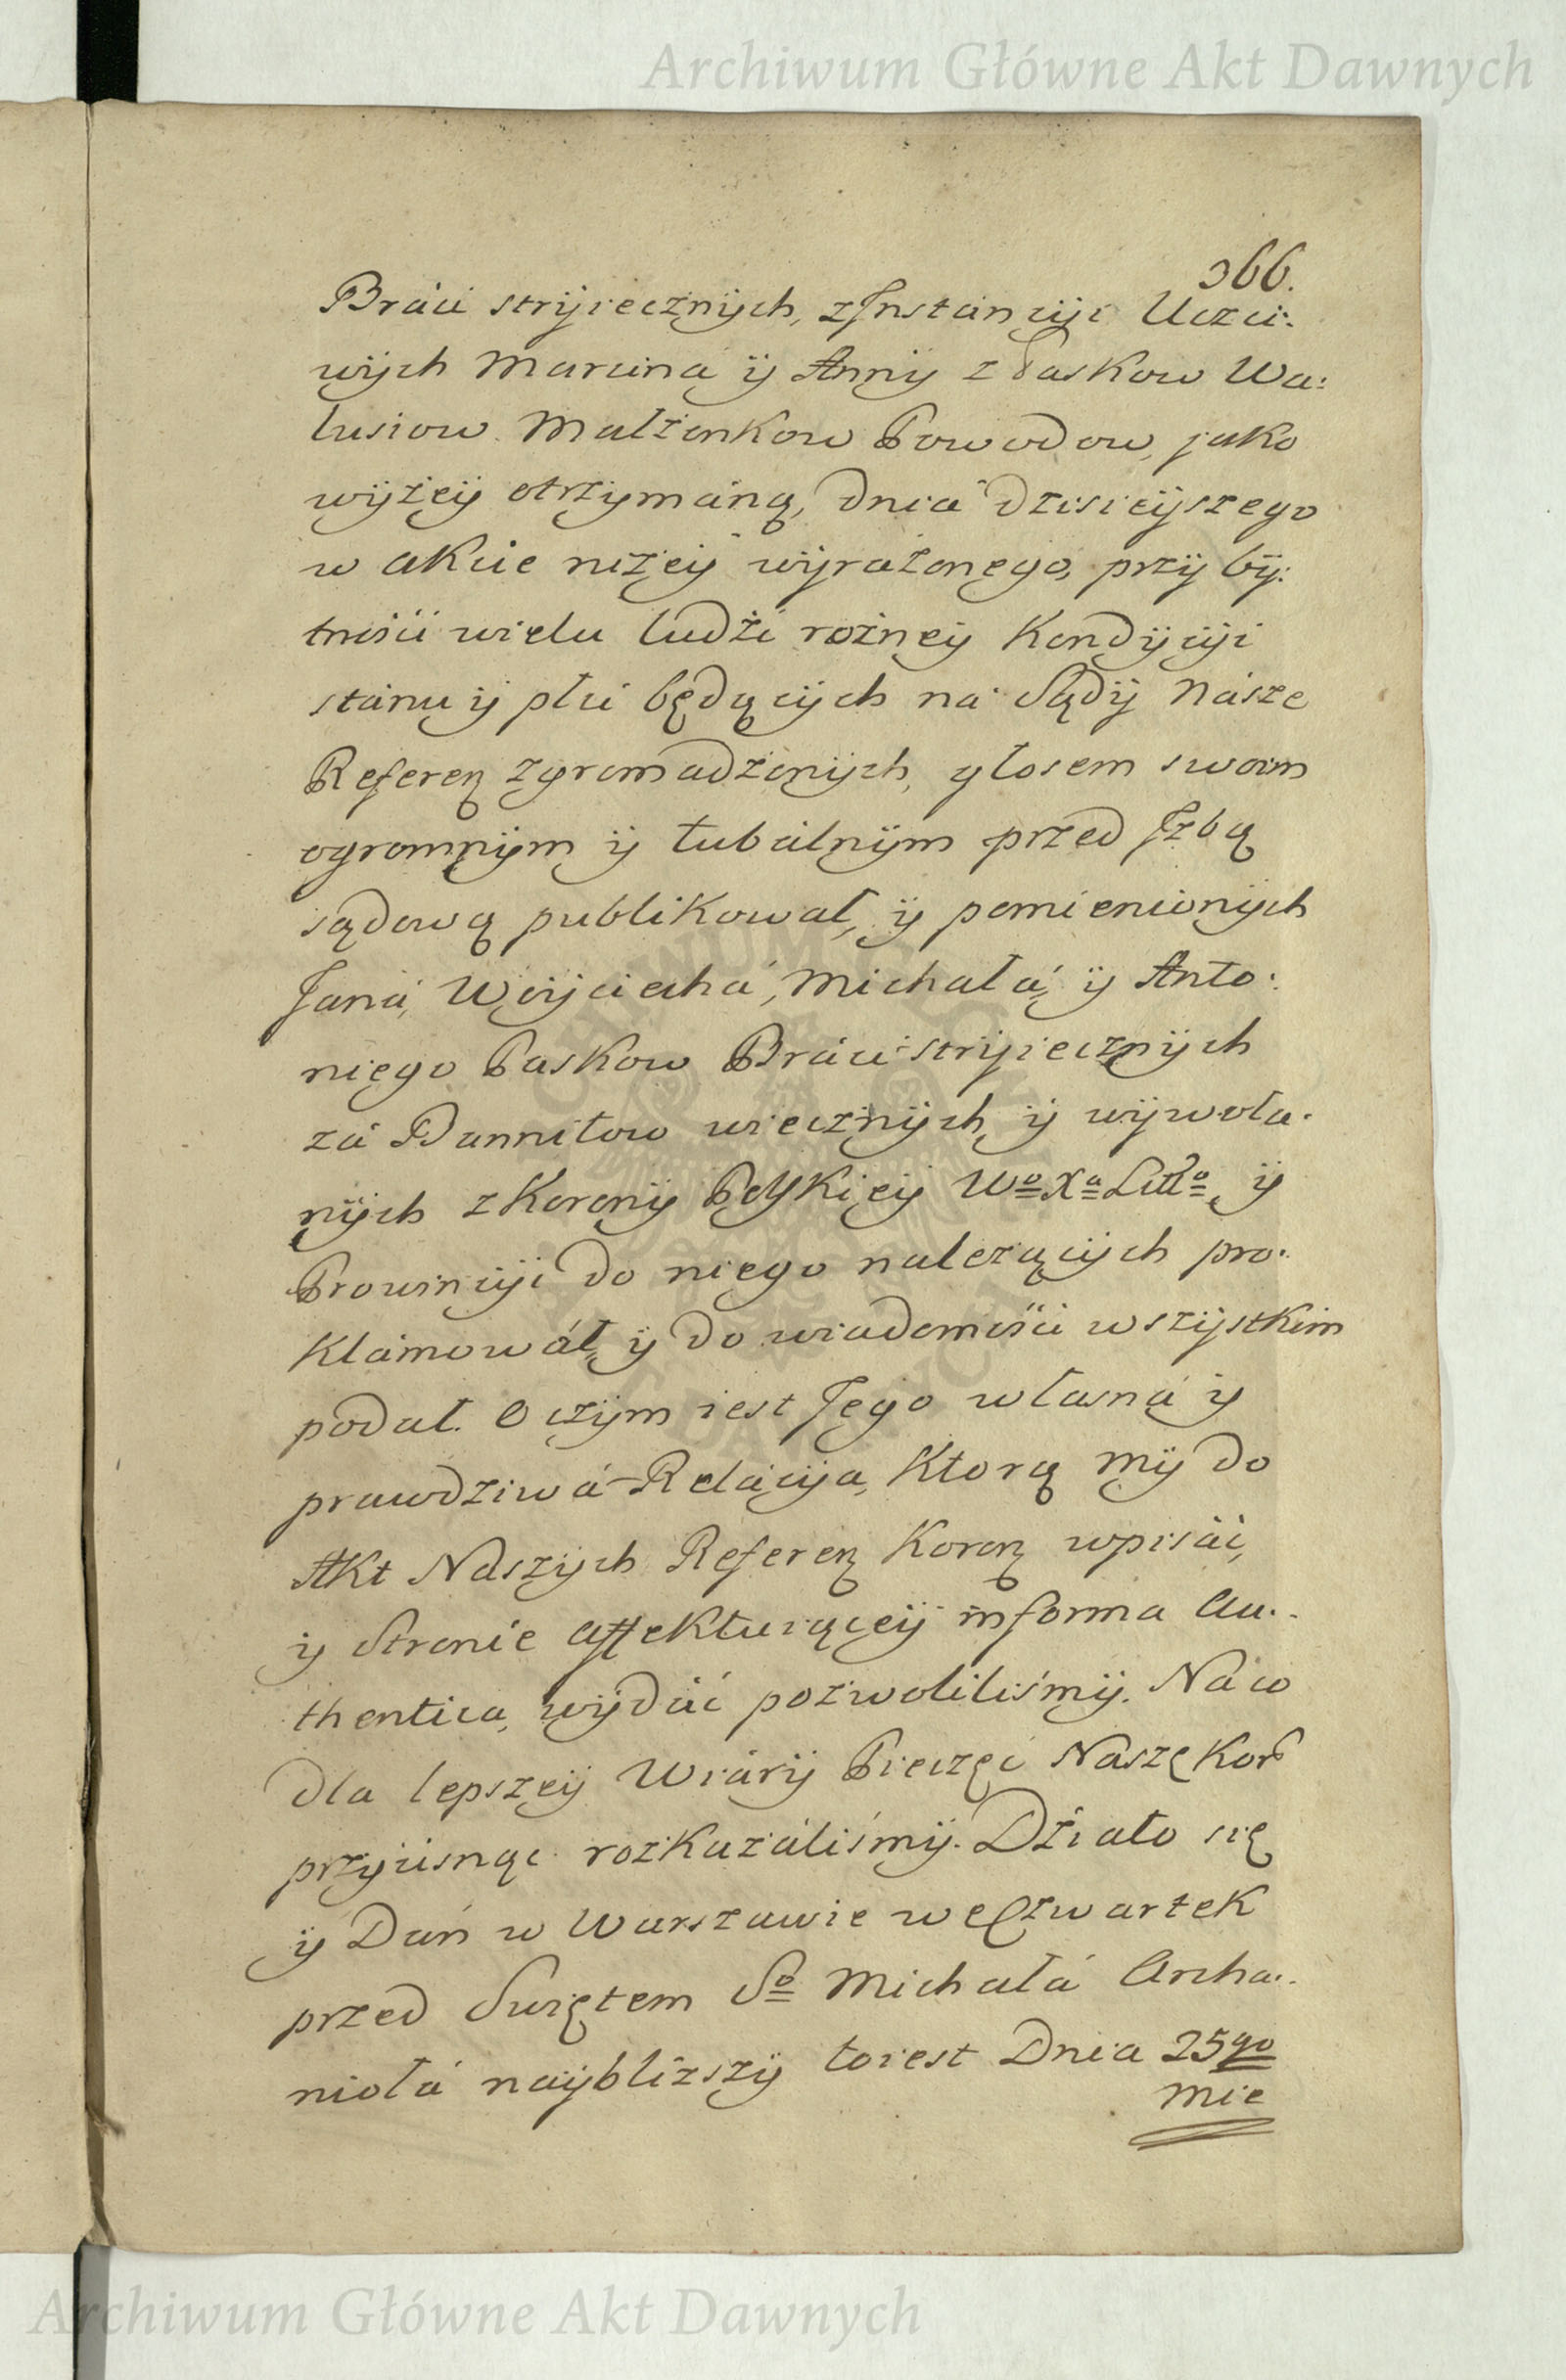 Archiwum Główne Akt Dawnych
366.
Bráci stryiecznych, z Jnstáncÿi Uczci:
wÿch Marciná ÿ Annÿ z Paskow Wa:
lusiow Małżonkow Powodow, jako
wÿżeÿ otrzÿmáną, dniá dzisieÿszego
w akcie niżeÿ wÿrażonego, przÿ bÿ:
tności wielu ludźi rożneÿ Kondÿcÿi
stánu ÿ płci będącÿch ná Sądÿ Násze
Referen zgromadzonÿch, głosem swoim
ogromnÿm ÿ tubalnÿm przed Jzbą
sądową publikował, ÿ pomienionÿch
Janá, Woÿciechá, Michałá, ÿ Anto:
niego Paskow Bráci stryiecznÿch
zá Bannitow wiecznÿch ÿ wÿwoła:
nÿch z Koronÿ Polskieÿ Wo Xa Litto ÿ
Prowincÿi do niego należącÿch pro:
klámowáł, ÿ do wiadomości wszÿstkim
podał. O czÿm iest Jego własná ÿ
prawdziwá Relácÿa, Ktorą mÿ do
Akt Naszÿch Referen Koron wpisáć,
ÿ Stronie affektuiąceÿ in forma Au:
thentica, wÿdáć pozwoliliśmÿ. Ná co
dla lepszeÿ Wiárÿ Pieczęć Naszę Kor
przÿcisnąć rozkazáliśmÿ. Dźiało się
ÿ Dan w Warszawie we Czwartek
przed Swiętem So Michałá Archa:
niołá naÿbliższÿ toiest Dnia 25go
Mie
Archiwum Główne Akt Dawnych